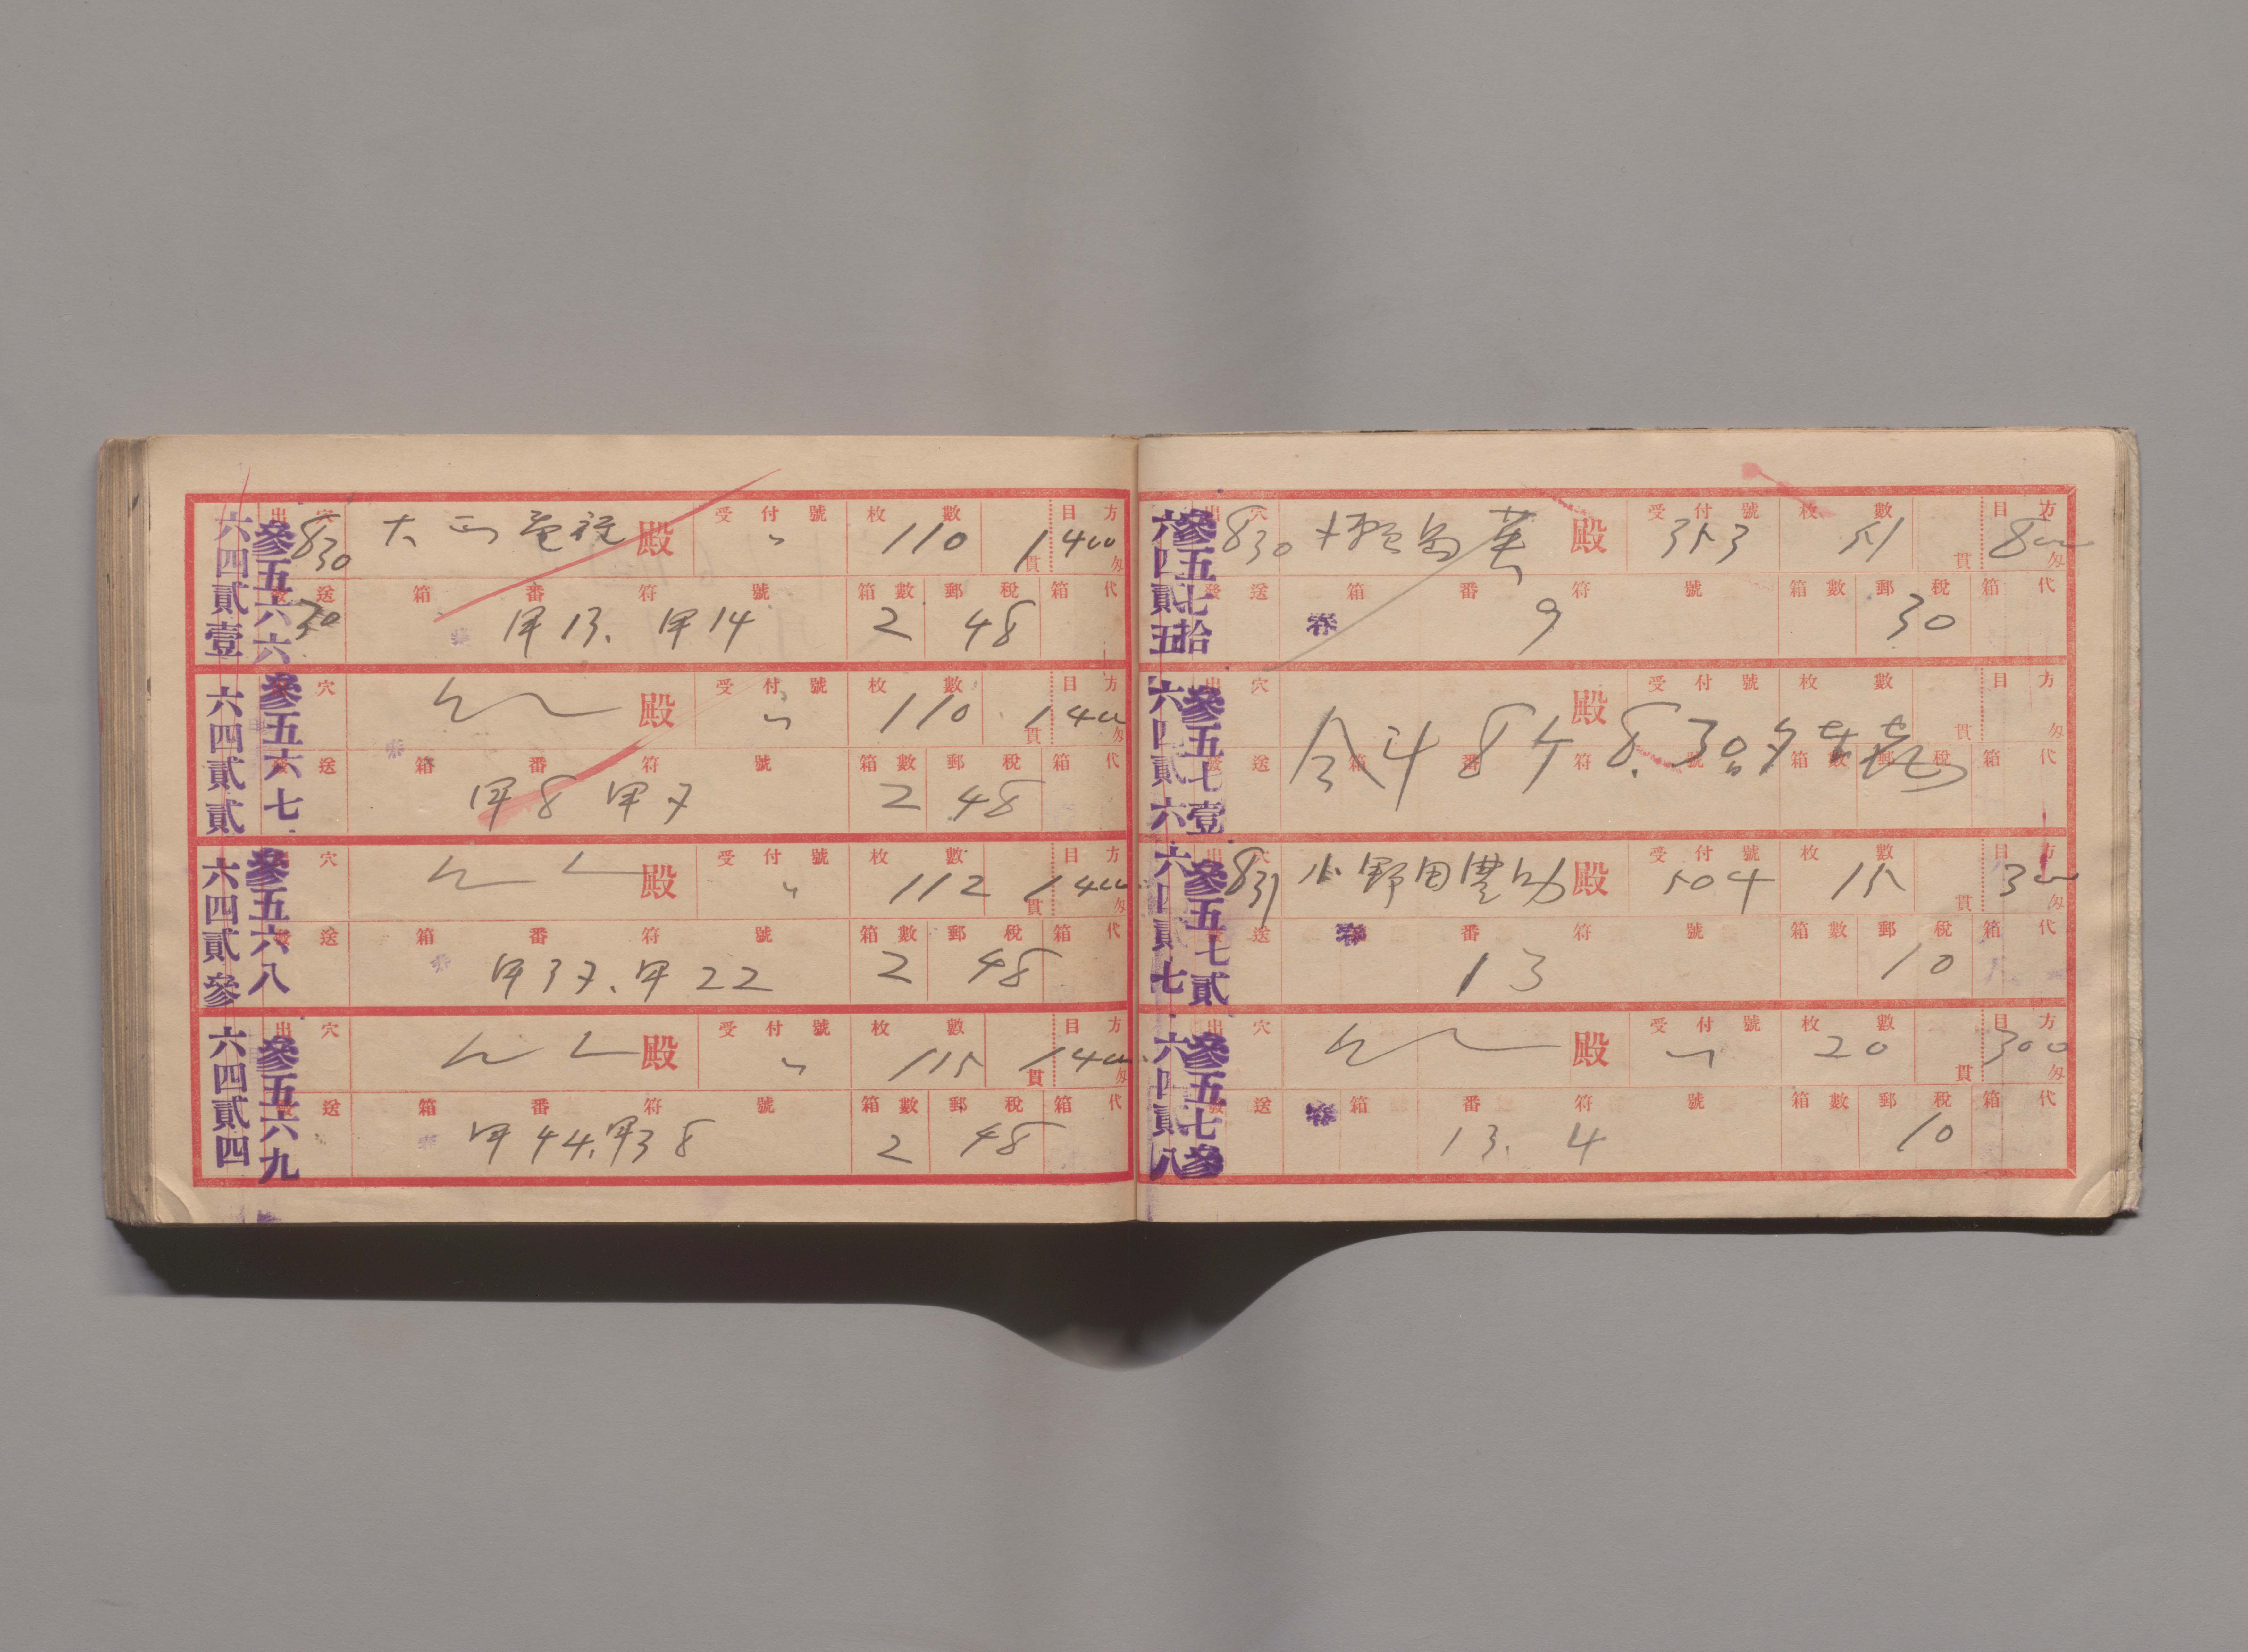 六四貳壹 參五六六 出穴 830 大 殿 受付號 〃 枚數 110 貫 目方 1400 匁
發送 30 箱番符號 甲13. 甲14 箱數 2 郵稅 48 箱代
六四貳貳 參五六七 穴 殿 受付號 〃 枚數 110 貫 目方 1400 匁
發送 箱番符號 甲8 甲7 箱數 2 郵稅 48 箱代
六四貳參 參五六八 穴 殿 受付號 〃 枚數 112 貫 目方 1400 匁
發送 箱番符號 甲37. 甲22 箱數 2 郵稅 48 箱代
六四貳四 參五六九 出穴 殿 受付號 〃 枚數 115 貫 目方 1400 匁
發送 箱番符號 甲44. 甲38 箱數 2 郵稅 48 箱代
六四貳五 參五七拾 出穴 830 殿 受付號 353 枚數 51 貫 目方 800 匁
發送 箱番符號 9 箱數 郵稅 30 箱代
六四貳六 參五七壹 出穴 殿 受付號 枚數 貫 目方 匁
發送 箱番符號 箱數 郵稅 箱代
合計 8ケ 8.30
六四貳七 參五七貳 出穴 831 小野田豊助 殿 受付號 504 枚數 15 貫 目方 300 匁
發送 箱番符號 13 箱數 郵稅 10 箱代
六四貳八 參五七參 出穴 殿 受付號 〃 枚數 20 貫 目方 300 匁
發送 箱番符號 13. 4 箱數 郵稅 10 箱代